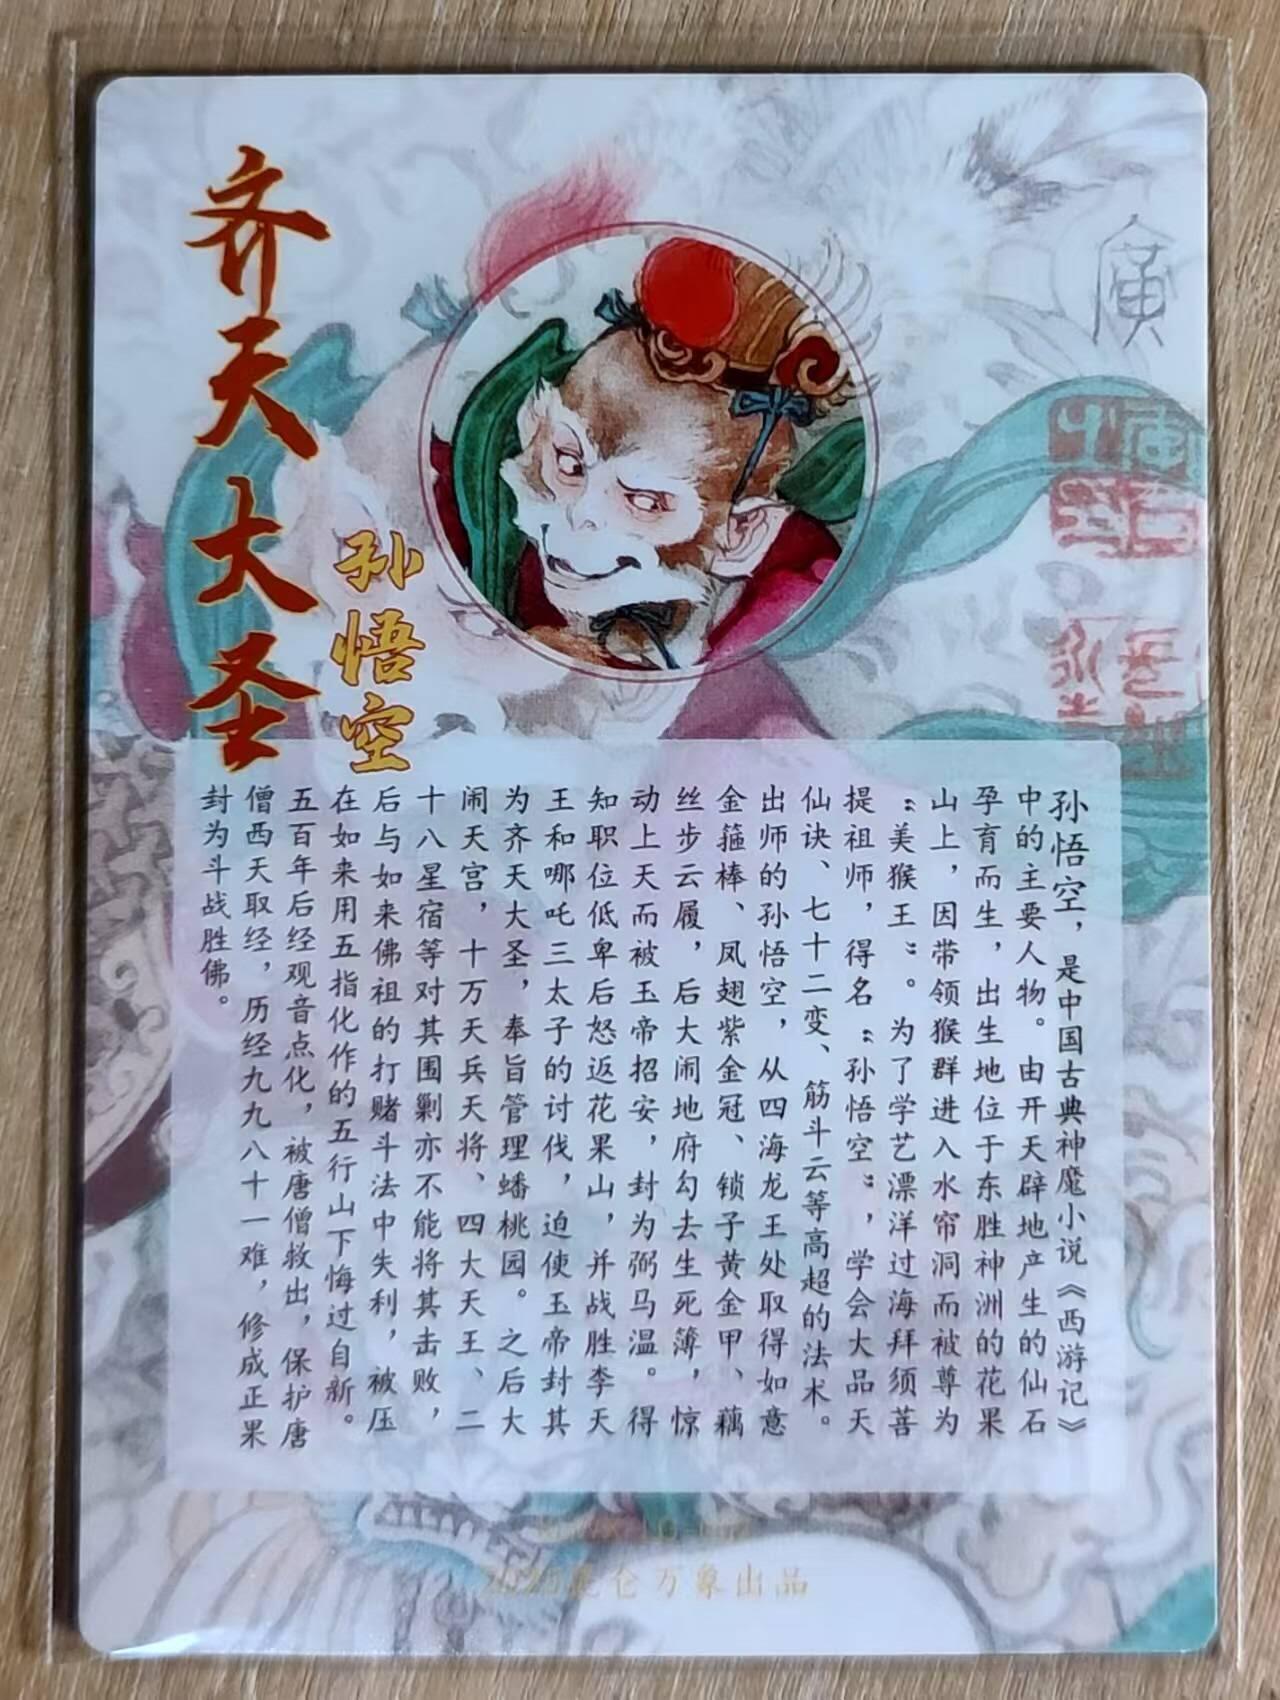 齐天大圣
孙悟空
孙悟空，是中国古典神魔小说《西游记》
中的主要人物。由开天辟地产生的仙石
孕育而生，出生地位于东胜神洲的花果
山上，因带领猴群进入水帘洞而被尊为
“美猴王”。为了学艺漂洋过海拜须菩
提祖师，得名“孙悟空”，学会大品天
仙诀、七十二变、筋斗云等高超的法术。
出师的孙悟空，从四海龙王处取得如意
金箍棒、凤翅紫金冠、锁子黄金甲、藕
丝步云履，后大闹地府勾去生死簿，惊
动上天而被玉帝招安，封为弼马温。得
知职位低卑后怒返花果山，并战胜李天
王和哪吒三太子的讨伐，迫使玉帝封其
为齐天大圣，奉旨管理蟠桃园。之后大
闹天宫，十万天兵天将、四大天王、二
十八星宿等对其围剿亦不能将其击败，
后与如来佛祖的打赌斗法中失利，被压
在如来用五指化作的五行山下悔过自新。
五百年后经观音点化，被唐僧救出，保护唐
僧西天取经，历经九九八十一难，修成正果
封为斗战胜佛。
廣
2025昆仑万象出品